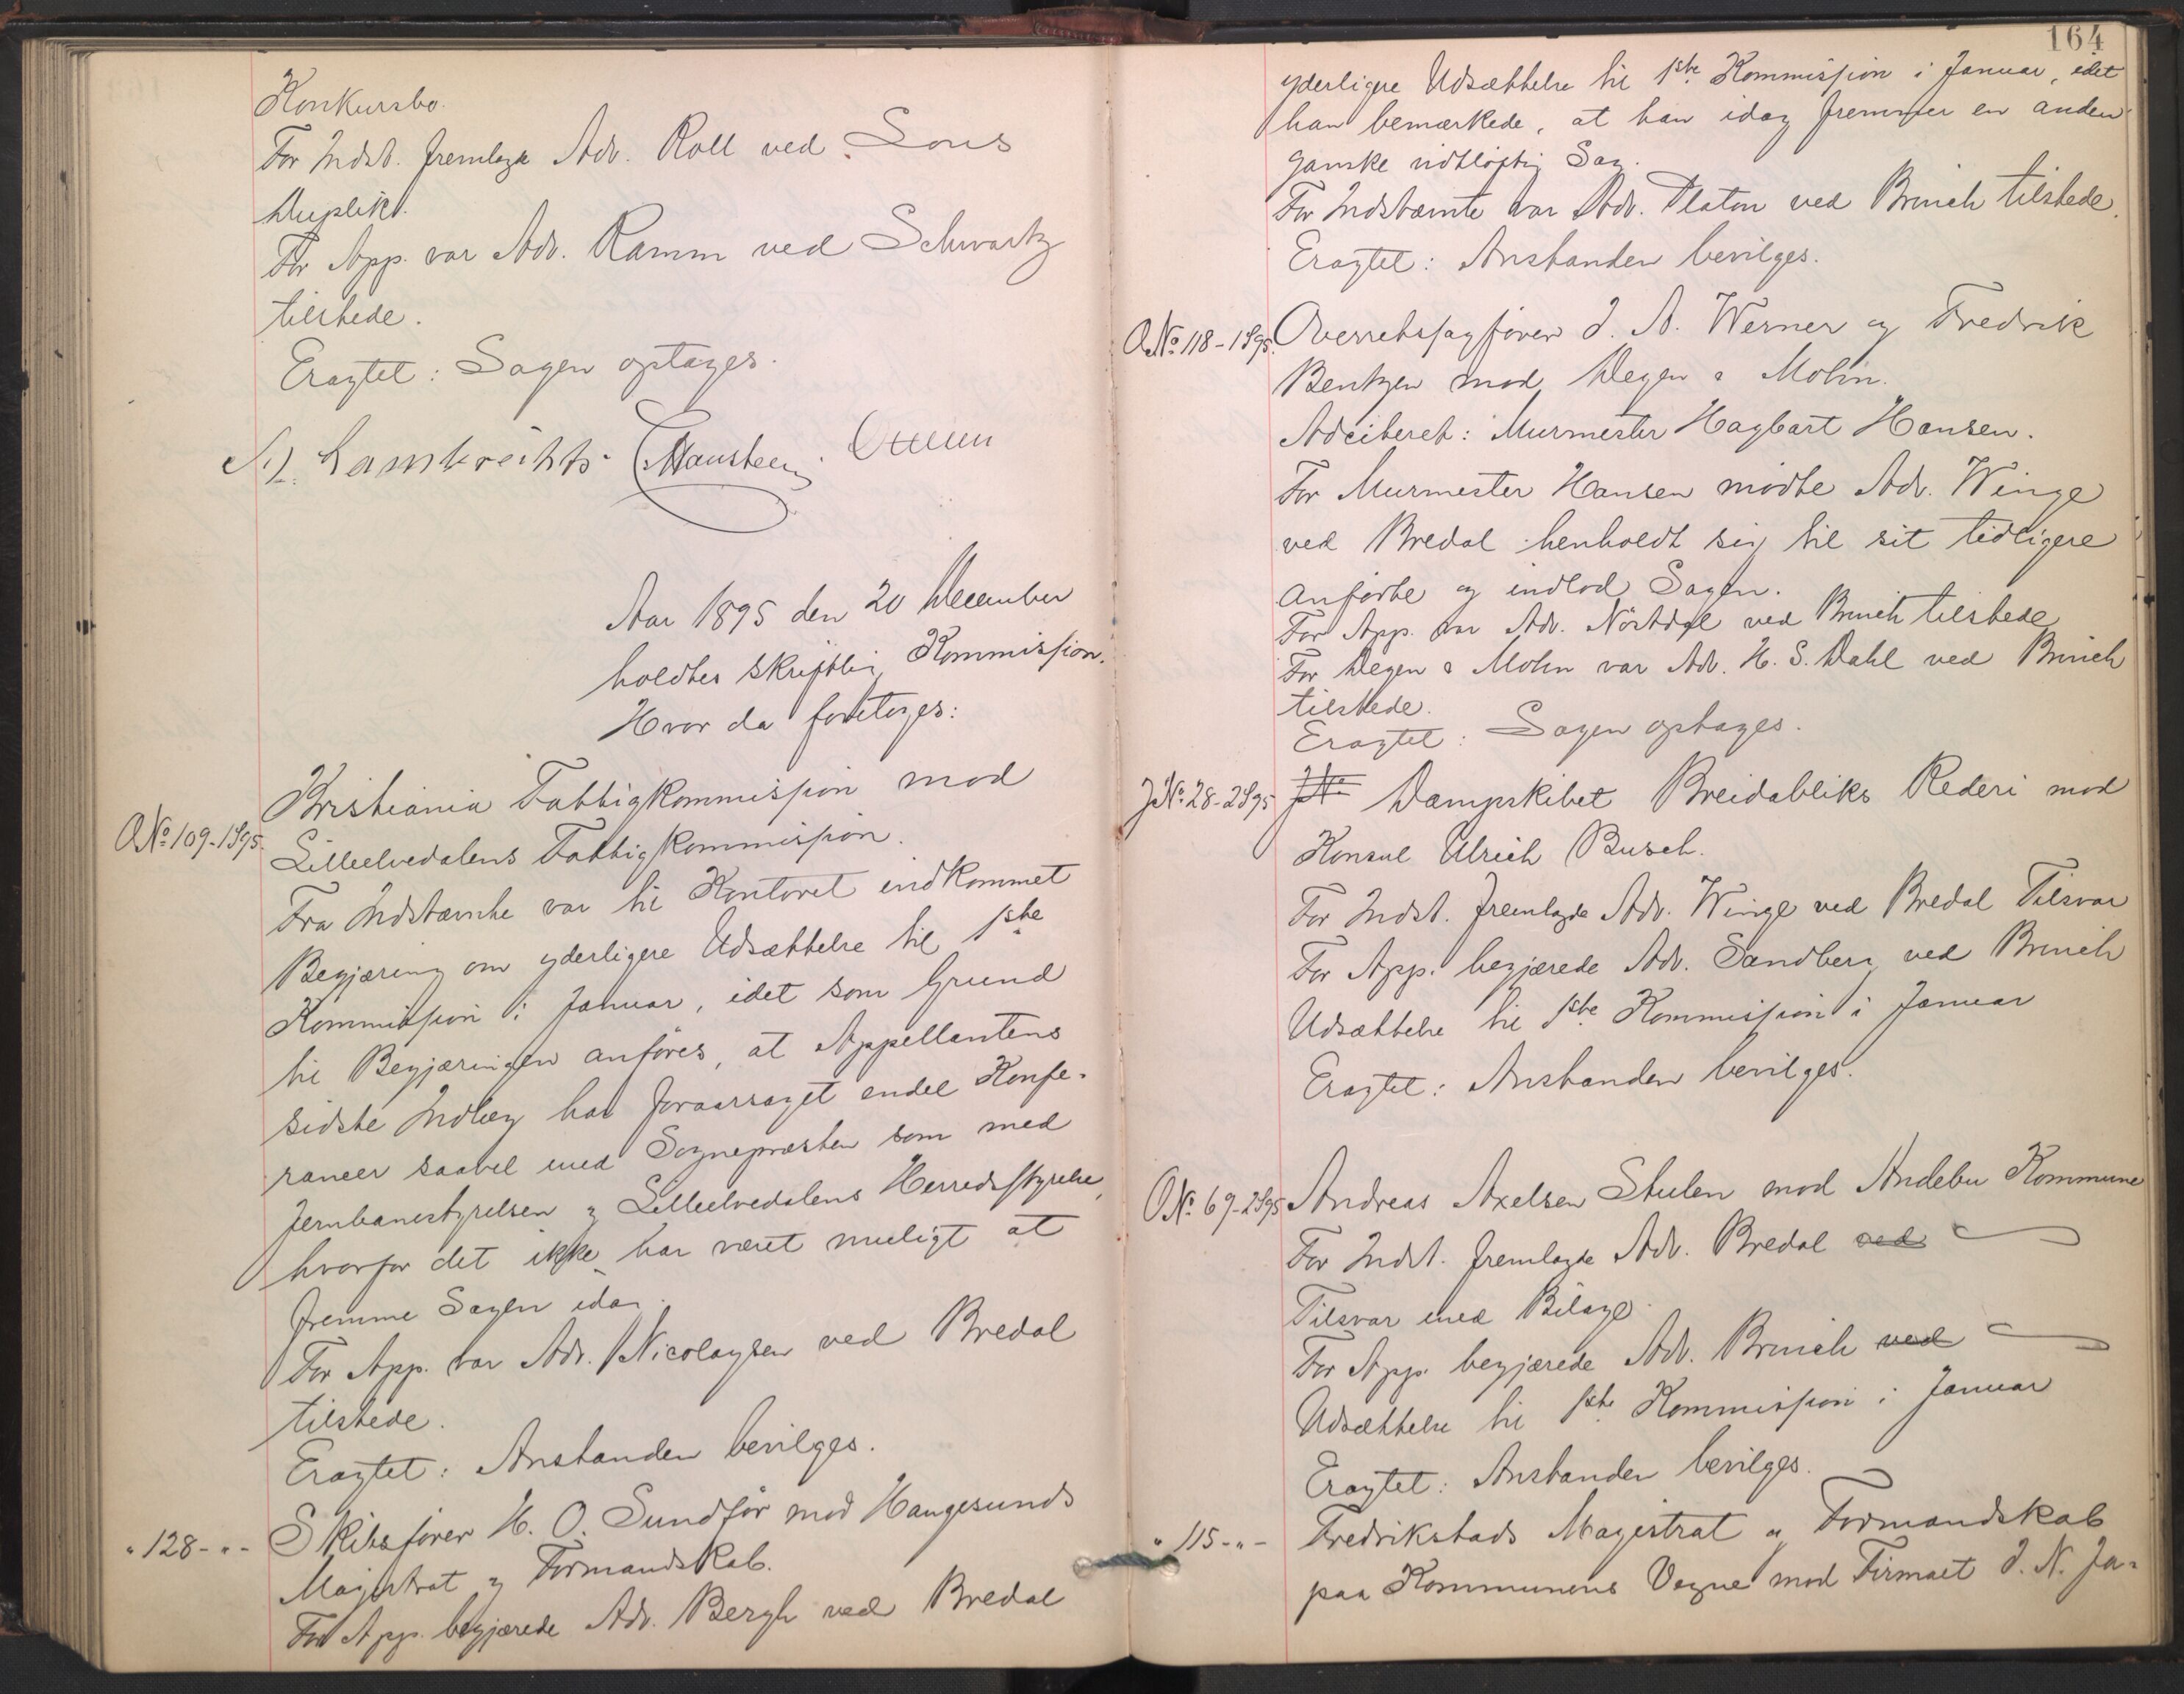 Konkursbo.
For Indst. fremlagde Adv. Roll ved Sons
Duplik.
For App. var Adv. Ramm ved Schwartz
tilstede.
Eragtet: Sagen optages.
Lambrechts
Aar 1895 den 20 December
holdtes skriftlig Kommission.
Hvor da foretoges:
O.No. 109-1S95. Kristiania Fattigkommission mod
Lilleelvedalens Fattigkommission.
Fra Indstævnte var til Kontoret indkommet
Begjæring om yderligere Udsættelse til 1ste
Kommission i Januar, idet som Grund
til Begjæringen anføres, at Appellantens
sidste Indlæg har foraarsaget endel Konfe-
rancer saavel med Sognepræsten som med
Jernbanestyrelsen og Lilleelvedalens Herredsstyrelse,
hvorfor det ikke har været muligt at
fremme Sagen idag.
For App. var Adv. Nicolaysen ved Bredal
tilstede.
Eragtet: Anstanden bevilges.
" 128-"- Skibsfører H. O. Sundfør mod Haugesunds
Magistrat og Formandskab.
For App. begjærede Adv. Bergh ved Bredal
164
yderligere Udsættelse til 1ste Kommission i Januar, idet
han bemærkede, at han idag fremmer en anden
ganske vidtløftig Sag.
For Indstævnte var Adv. Platou ved Brinch tilstede.
Eragtet: Anstanden bevilges.
O.No. 118-1S95. Overretssagfører J. A. Werner og Fredrik
Bentzen mod Degen & Mohn.
Adciteret: Murmester Hagbart Hansen.
For Murmester Hansen mødte Adv. Winge
ved Bredal henholdt sig til sit tidligere
anførte og indlod Sagen.
For App. var Adv. Nørdal ved Brinch tilstede
For Degen & Mohn var Adv. H. S. Dahl ved Brinch
tilstede.
Eragtet: Sagen optages.
J.No. 28-2S95 Dampskibet Breidabliks Rederi mod
Konsul Ulrich Busch.
For Indst. fremlagde Adv. Winge ved Bredal Tilsvar
For App. begjærede Adv. Sandberg ved Brinch
Udsættelse til 1ste Kommission i Januar
Eragtet: Anstanden bevilges.
O.No. 69-2S95 Andreas Axelsen Stulen mod Andebu Kommune
For Indst. fremlagde Adv. Bredal ved
Tilsvar med Bilage.
For App. begjærede Adv. Brinch ved
Udsættelse til 1ste Kommission i Januar
Eragtet: Anstanden bevilges.
" 115-"- Fredrikstads Magistrat og Formandskab
paa Kommunens Vegne mod Firmaet J. N. Ja-